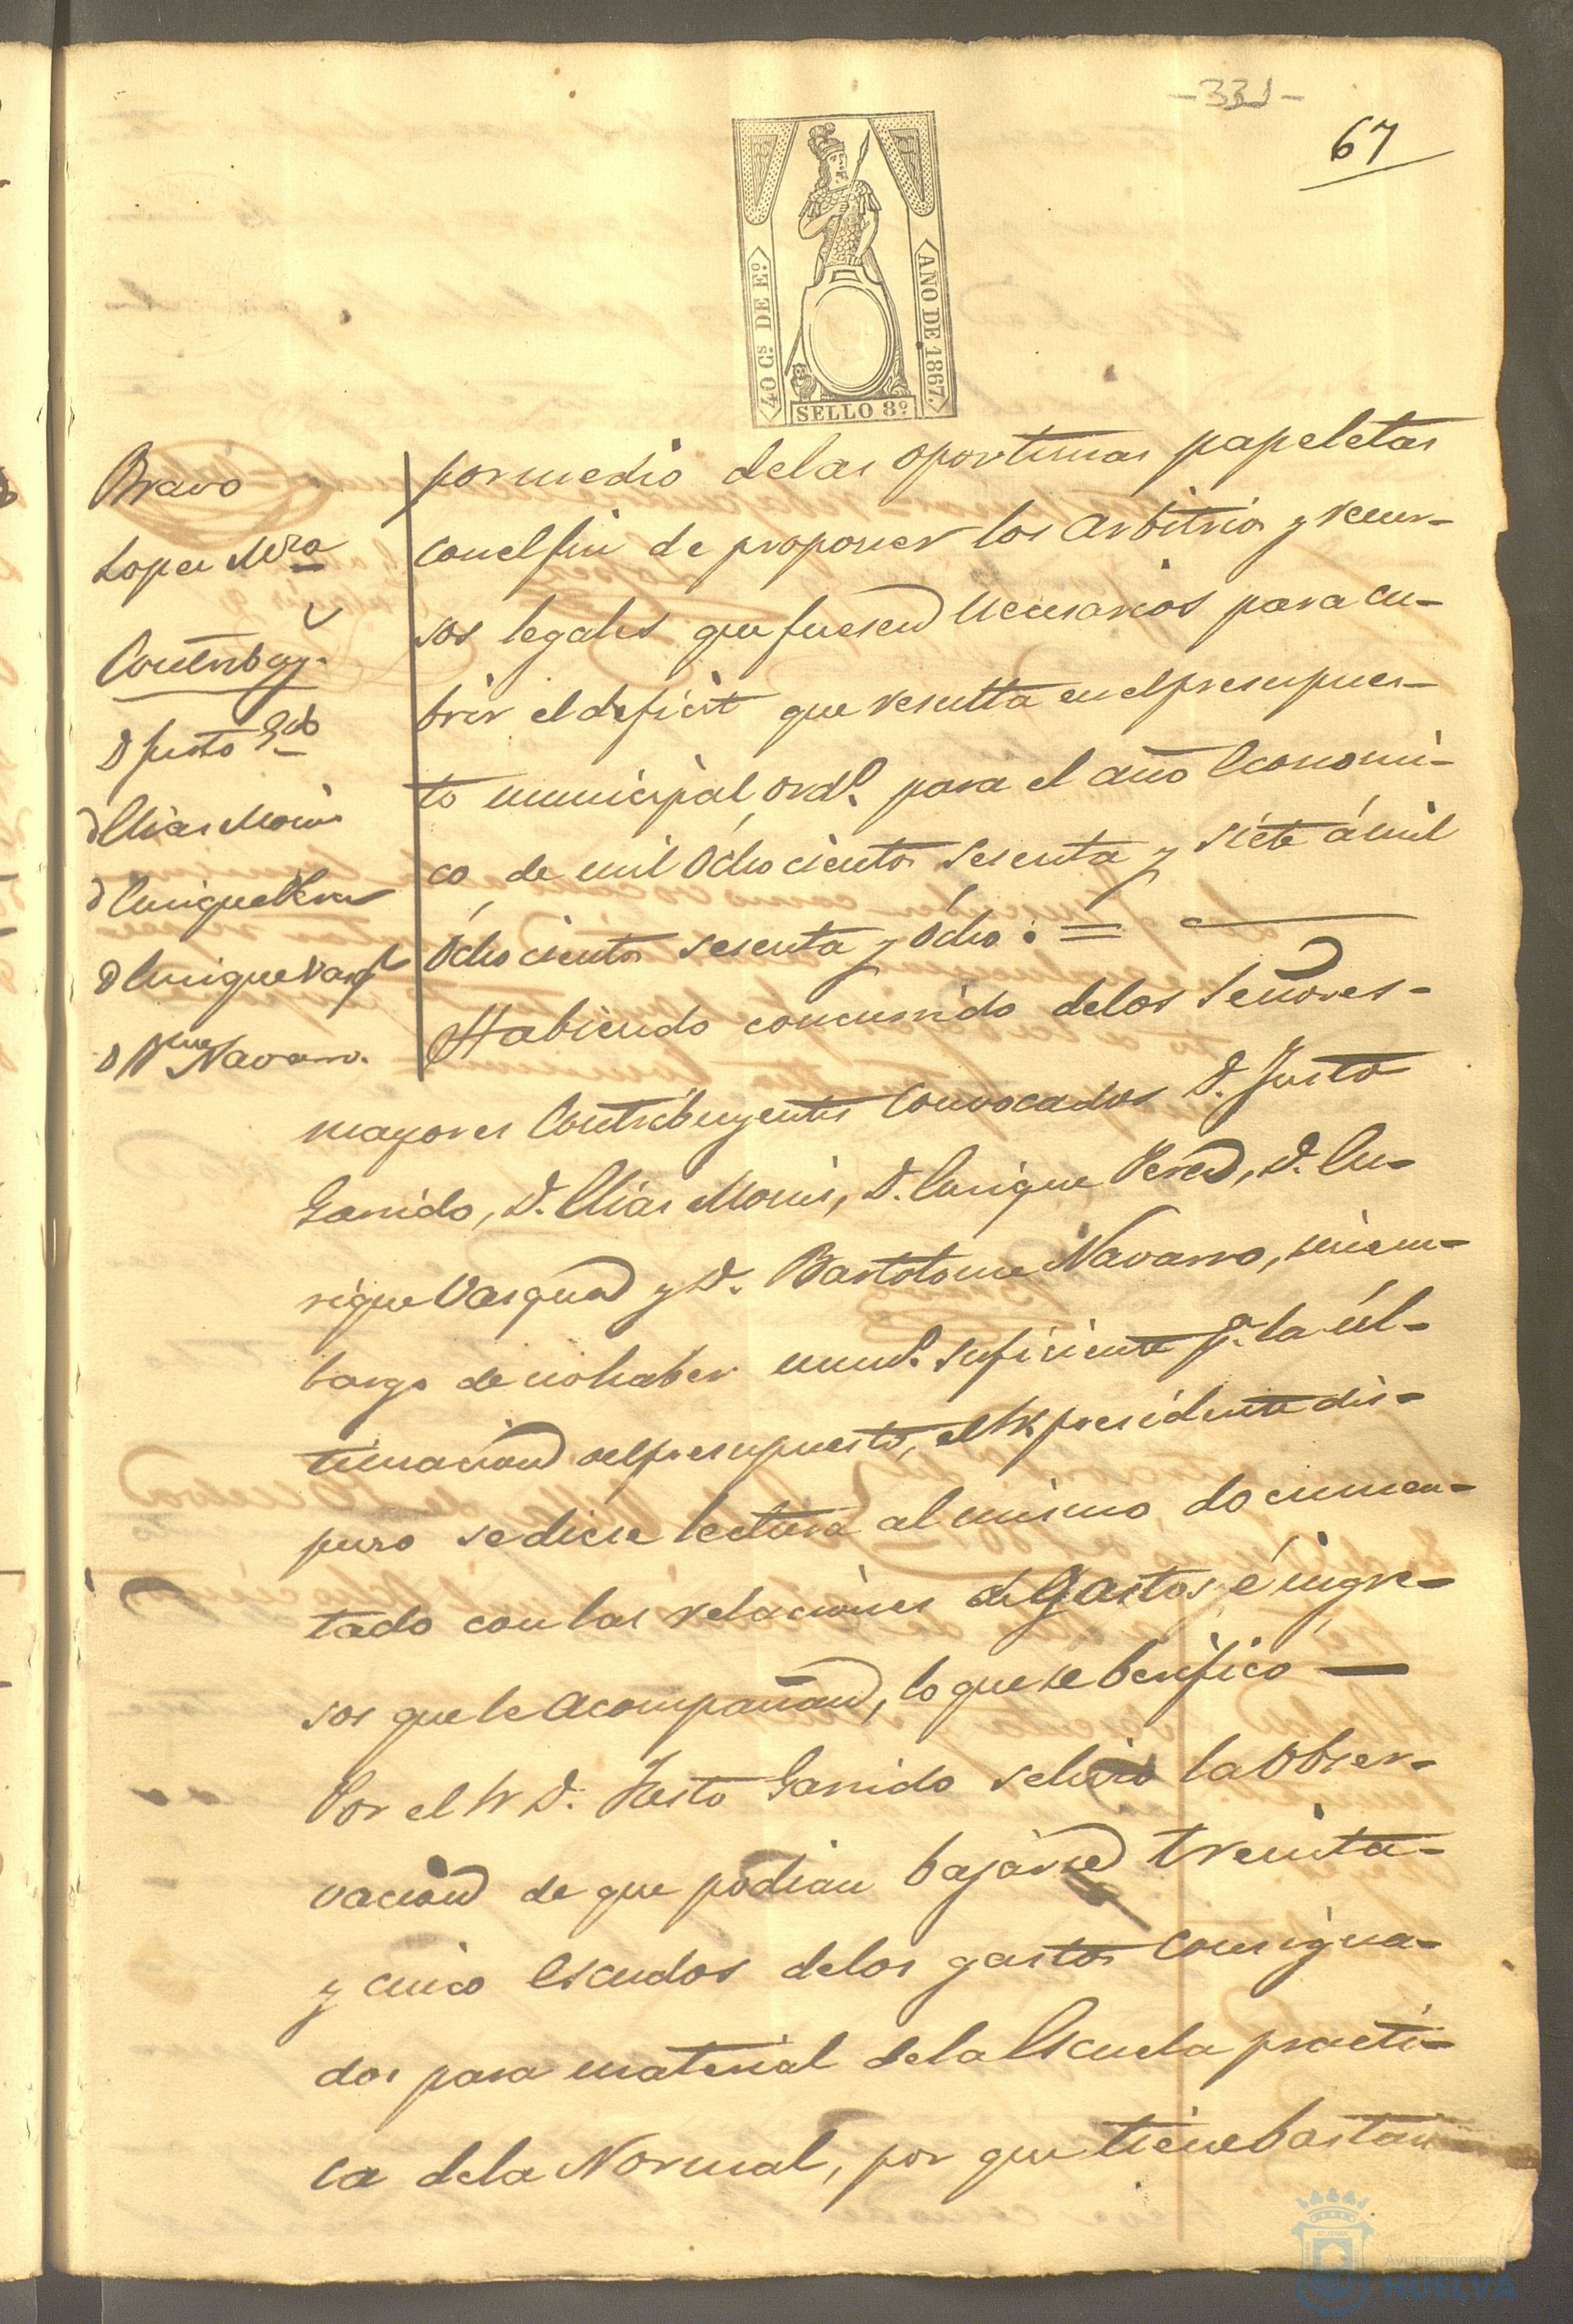 -331-
67
40 Gs. DE Eo.
AÑO DE 1867.
SELLO 8º
Bravo
Lopez
Contribuy.
D Justo Gdo
D Elias Monis
D Enrique Perez
D Enrique Vazqz
D Bme Navarro.
por medio delas oportunas papeletas
con el fin de proponer los arbitrios y recur-
sos legales que fuesen necesarios para cu-
brir el deficit que resulta en el presupues-
to municipal ordo. para el año Economi-
co de mil ochocientos sesenta y siete á mil
ochocientos sesenta y ócho: =
Habiendo concurrido delos Señores-
mayores Contribuyentes convocados D. Justo
Garrido, D. Elias Monis, D. Enrique Perez, D. En-
rique Vasquez y D. Bartolome Navarro, sin em-
bargo de no haber numo. suficiente pa. la úl-
timacion del presupuesto, el Sr. presidente dis-
puso se diese lectura al mismo documen-
tado con las relaciones de Gastos é ingre-
sos que le acompañan, lo que se berifico —
Por el Sr D. Justo Garrido se hizo la obser-
vacion de que podian bajarse treinta-
y cinco escudos delos gastos consigna-
dos para material dela Escuela practi-
ca dela Normal, por que tiene bastan
Ayuntamiento
HUELVA